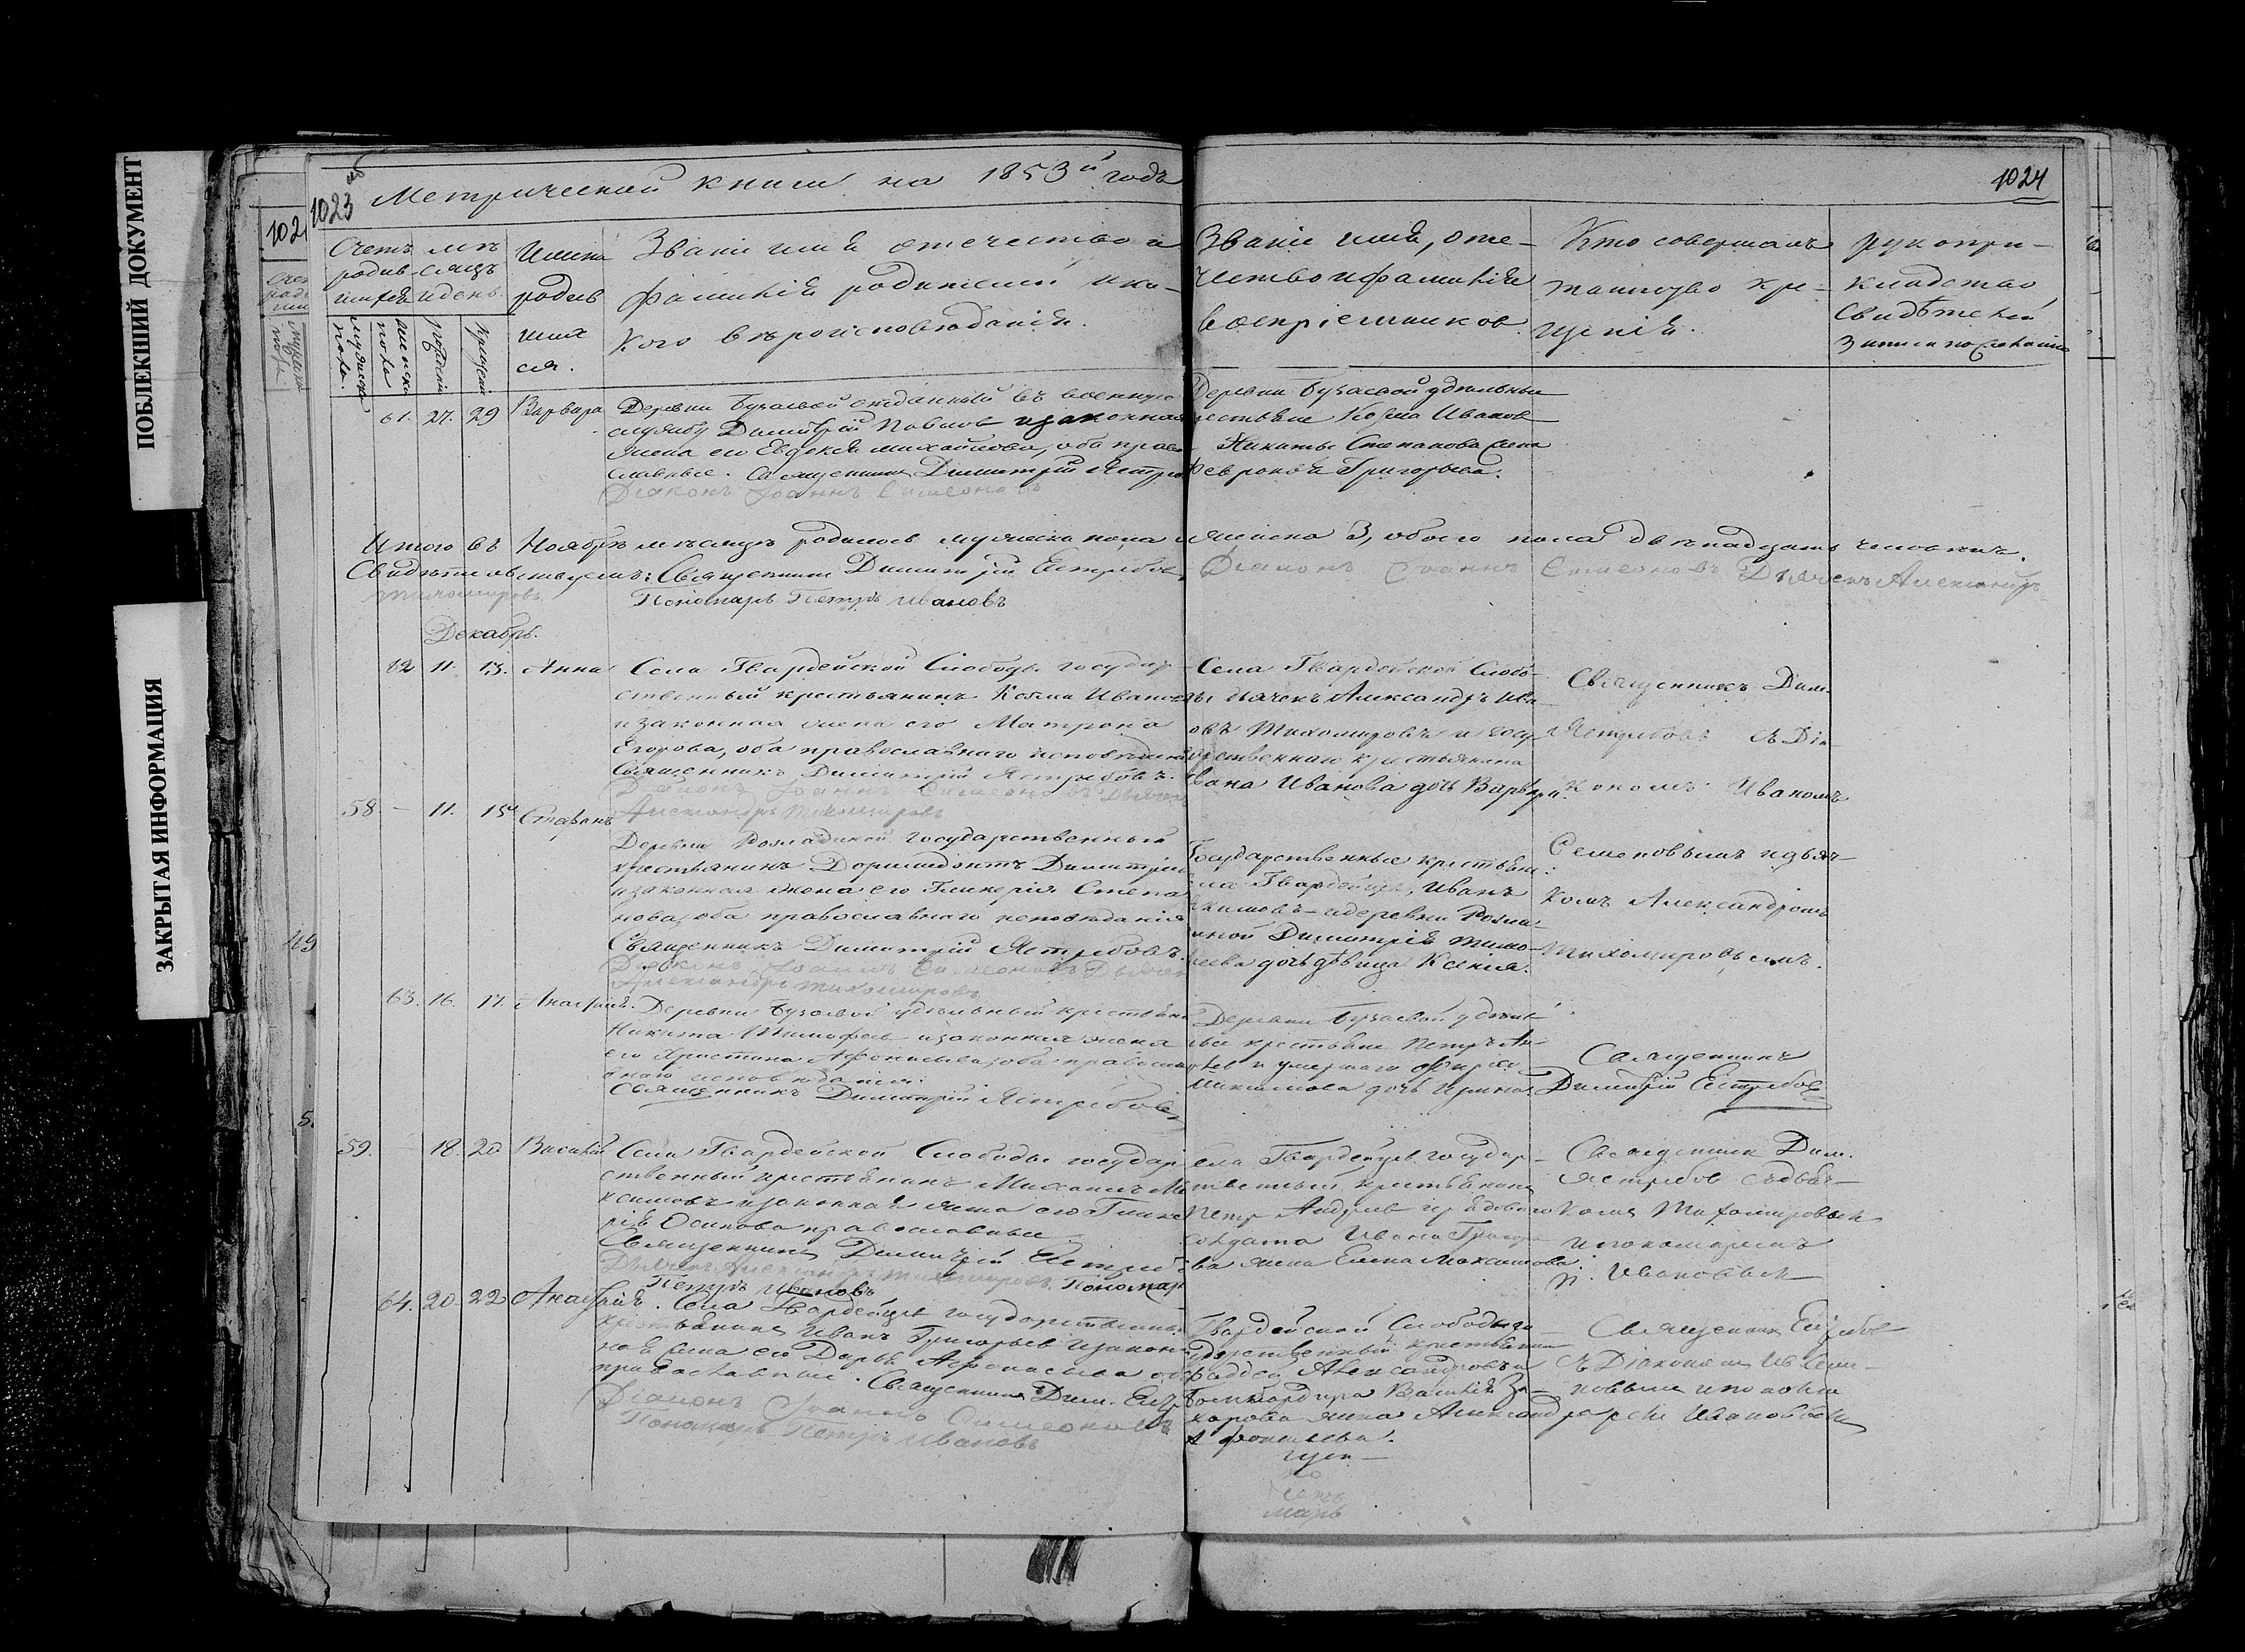 ПОБЛЕКШИЙ ДОКУМЕНТ
ЗАКРЫТАЯ ИНФОРМАЦИЯ
1023
Метрической книги на 1853й годъ
1024
Счетъ родив-шихся
мѣсяцъ и день
Имена родив шихся.
Званіе имя отечество и фамилія родителей и ка-
кого вѣроисповѣданія.
Званіе имя, оте-
чество и фамилія
воспріемниковъ
Кто совершалъ
таинство кре-
щенія.
рукопри-
кладство
свидѣтелей
записи по желанію
мужеска пола.
женска пола
рожденія
крещенія
61. 27. 29 Варвара
Деревни Бузаевой отданный въ военную
службу Димитрій Павловъ и законная
жена его Евдокія Михайлова, оба право
славные. Священникъ Димитрій Ястре
Діаконъ Іоаннъ Симеоновъ
Деревни Бузаевой удѣльные
крестьяне Козма Иванов
Никиты Степанова жена
Февронья Григорьева.
Итого въ Ноябрѣ мѣсяцѣ родилось мужеска пола женска 3, обоего пола двѣнадцать человѣкъ.
Свидѣтельствуемъ: Священникъ Димитрій Ястребовъ Діаконъ Іоаннъ Симеоновъ Дьячекъ Александръ
Тихомировъ Пономарь Петръ Ивановъ
Декабрь.
62 11. 13. Анна
Села Гвардейской Слободы государ-
ственный крестьянинъ Козма Ивановъ
и законная жена его Матрона
Егорова, оба православнаго исповѣданія
Священникъ Димитрій Ястребовъ.
Діаконъ Іоаннъ Симеоновъ Дьячекъ
Александръ Тихомировъ
Села Гвардейской Слобо-
ды дьячекъ Александръ Ива
овъ Тихомировъ и госу-
дарственнаго крестьянина
Ивана Иванова дочь Варвара.
Священникъ Дим.
Ястребовъ съ Діа-
кономъ Иваномъ
Семеновымъ и дьяч-
комъ Александромъ
Тихомировымъ.
58 - 11. 15 Стефанъ
Деревни государственный
крестьянинъ Доримедонтъ Димитріев
и законная жена его Гликерія Степа
нова, оба православнаго исповѣданія
Священникъ Димитрій Ястребовъ.
Діаконъ Іоаннъ Симеоновъ Дьячек
Александръ Тихомировъ
Государственные крестьяне:
села Гвардейцъ, Иванъ
Акимовъ и деревни
Димитрія Тимо-
феева дочь дѣвица Ксенія.
63. 16. 17. Анастасія.
Деревни Бузаевой удѣльный крестьян
Никита Тимофеев и законная жена
его Христина Афонасьева, оба правосла
внаго исповѣданія.
Священникъ Димитрій Ястребовъ
Деревни Бузаевой удѣль-
ные крестьяне Петръ
и умершаго
дочь Ирина.
Священникъ
Димитрій Ястребовъ
59. - 18. 20 Василій
Села Гвардейской Слободы государ
ственный крестьянинъ Михаилъ Ма
ксимовъ и законная жена его Глике
рія Осипова православные
Священникъ Димитрій Ястреб
Дьячекъ Александръ Тихомировъ. Пономарь
Петръ Ивановъ
села Гвардейцев государ-
ственный крестьянинъ
Петр Андреев и рядоваго
солдата Ивана Григорь
ва жена Елена Максимова.
Священник Дим.
Ястребов съ дьяч-
комъ Тихомировым
и пономаремъ
п. Ивановым
64. 20. 22 Анастасія.
Села Гвардейцев государственный
крестьянинъ Иванъ Григорьев и закон-
ная жена его Дарья Афонасьева об
православные. Священникъ Дим. Ястр
Діаконъ Іоаннъ Симеоновъ
Пономарь Петръ Ивановъ
Гвардейской Слободы го
ударственный крестьянин
Фаддей Александровъ и
Бомбардира Василія За-
харова жена Александра
Афонасьева.
Священник Ястребов
съ Діаконом Ив Семе-
новым и поном
арем Ивановым
марь